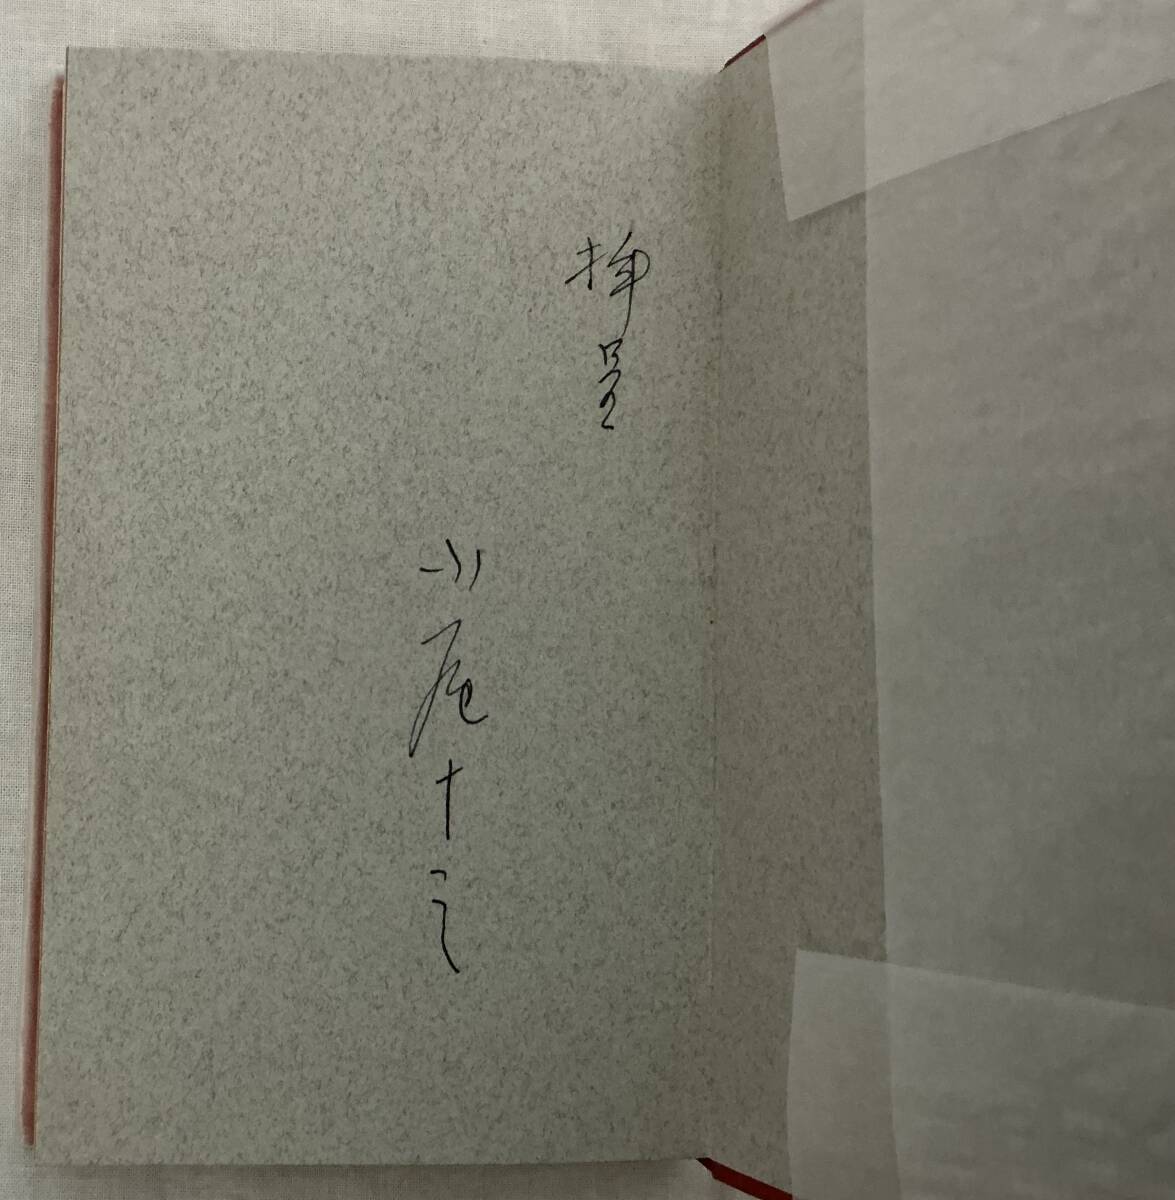 拝呈
小尾十三